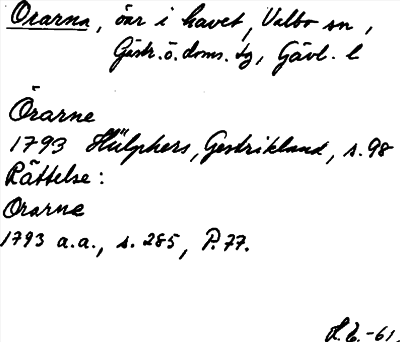 Orarna, öar i havet, Valbo sn,
Gästr. ö. doms. tg, Gävl. l
Örarne
1793 Hülphers, Gestrikland, s. 98
Rättelse:
Orarne
1793 a.a., s. 285, P. 77.
H.E. -61.